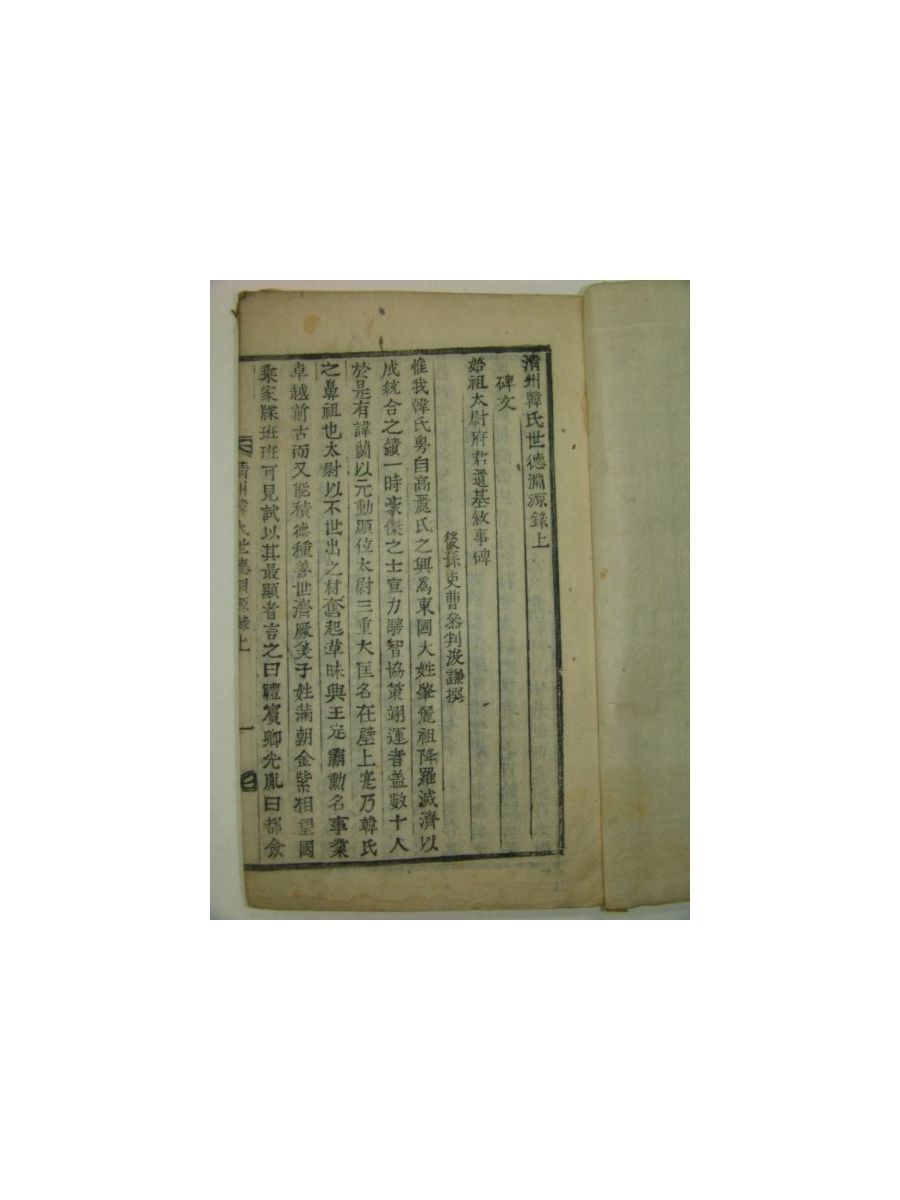 淸州韓氏世德淵源錄上
碑文
始祖太尉府君遺基敍事碑
後孫吏曹叅判浚謙撰
惟我韓氏粤自高麗氏之興爲東國大姓肇麗祖降羅滅濟以
成統合之績一時豪傑之士宣力騁智協策翊運者盖數十人
於是有諱蘭以元勳顯位太尉三重大匡名在壁上寔乃韓氏
之鼻祖也太尉以不世出之材奮起草昧與王定霸勳名事業
卓越前古而又能積德種善世濟厥美子姓滿朝金紫相望國
乘家牒班班可見試以其最顯者言之曰禮賓卿光胤曰都僉
淸州韓氏世德淵源錄上
一